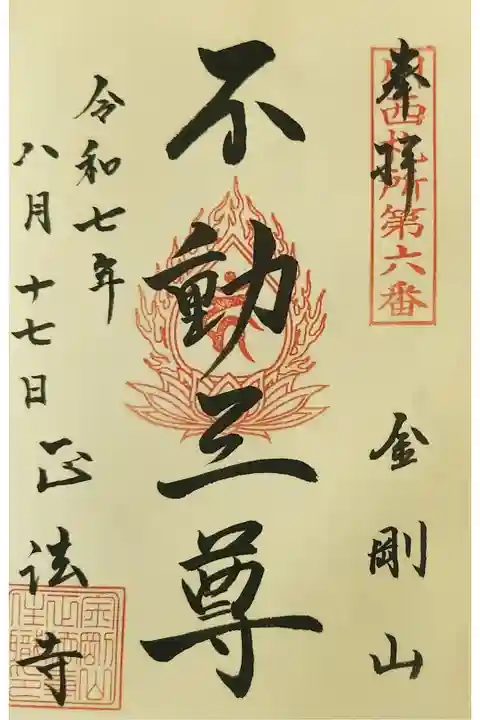 奉拝
西札所第六番
金剛山
不動三尊
令和七年
八月十七日
正法寺